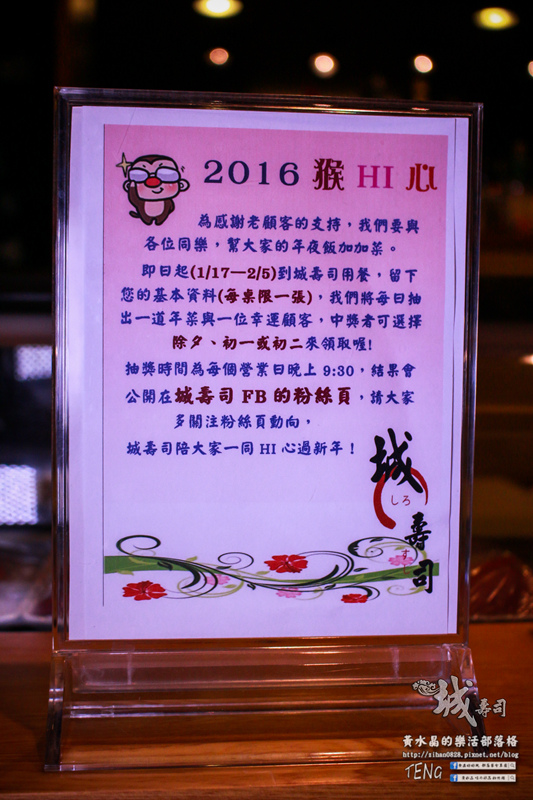 2016 猴 HI 心
為感謝老顧客的支持，我們要與
各位同樂，幫大家的年夜飯加加菜。
即日起(1/17—2/5)到城壽司用餐，留下
您的基本資料(每桌限一張)，我們將每日抽
出一道年菜與一位幸運顧客，中獎者可選擇
除夕、初一或初二來領取喔!
抽獎時間為每個營業日晚上 9:30，結果會
公開在城壽司 FB 的粉絲頁，請大家
多關注粉絲頁動向，
城壽司陪大家一同 HI 心過新年！
城
しろ
壽
す
司
城壽司
黃水晶的樂活部落格
http://sihan0828.pixnet.net/blog
TENG